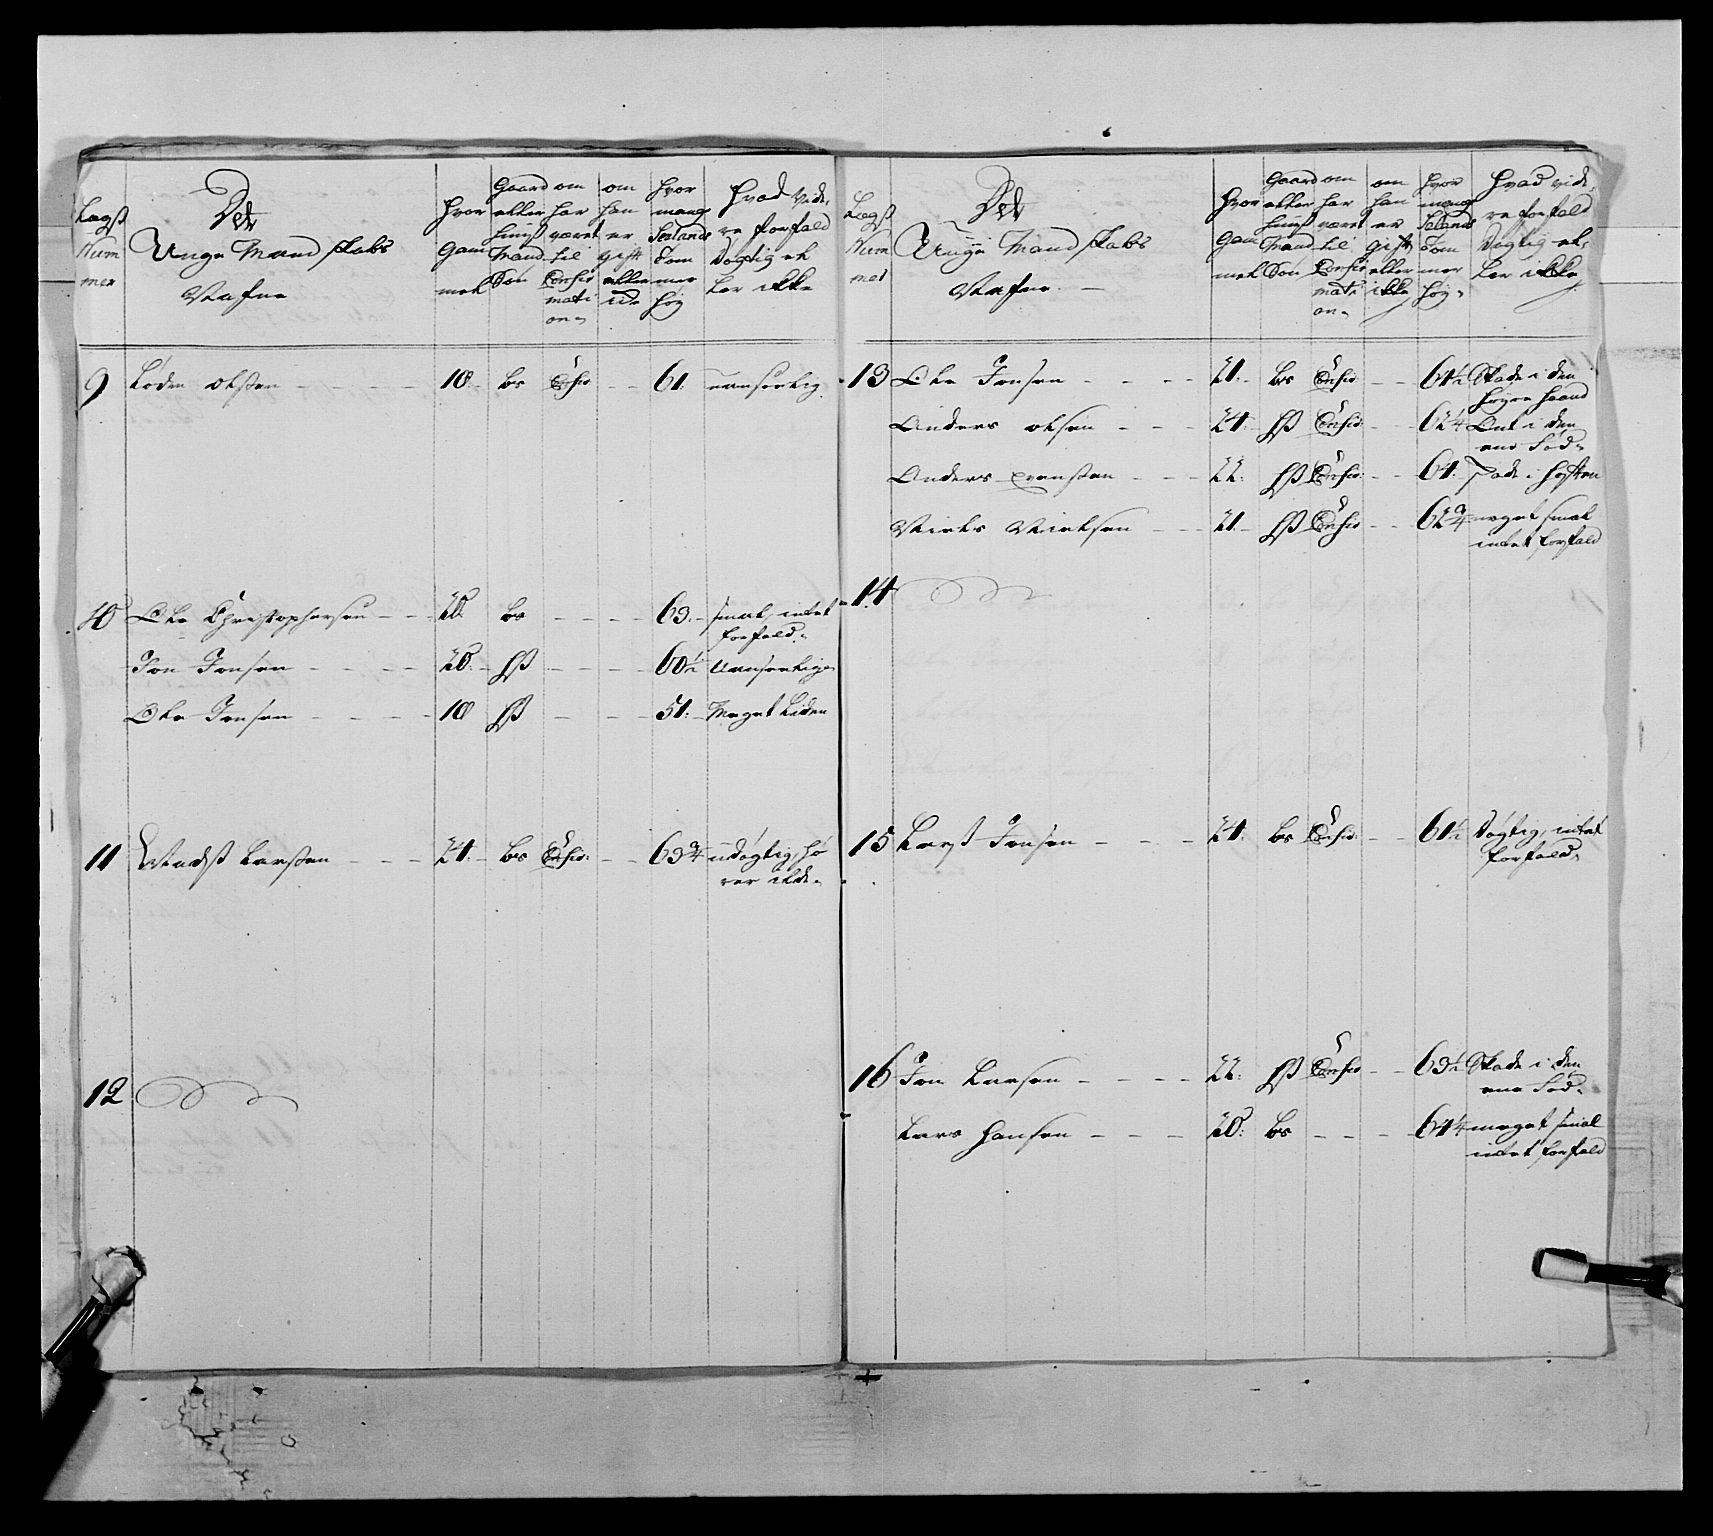 Lægs
Num
mer
Det
Unge Mand skabs
Nafne
Hvor
Gam
mel
Gaard
eller
huus
Mand
Søn
om
har
været
til
Confir
mati
on
om
han
er
gift
eller
Hvor
mange
Siælands
Tom
mer
høy
Hvad vide
re forfald
Dygtig el
ler ikke
9 Loden olssen 18 bs Confir 61. uanseelig
10 Ole Christophersen 20. bs 63. smal, intet
forfald
Jon Jonsen 20. hs 60½ Uanseelig
Ole Jonsen 18 hs 51. Meget Liden
11 Madss Larssen 24. bs Confir: 63¾ udygtig, hø
rer ilde
12
Lægs
Num
mer
Det
Unge Mand skabs
Nafne
Hvor
Gam
mel
Gaard
eller
huus
Mand
Søn
om
har
været
til
Confir
mati
on
om
han
er
gift
eller
ikke
Hvor
mange
Sælands
Tom
mer
høy
Hvad vide
re forfald
Dygtig el
ler ikke
13 Ole Jonsen 21. bs Confir 64½ Skade i den
høyre haand
Anders olsen 24. hs Confir: 62¼ Ont i den
ene Fod
Anders 22. hs Confir: 64. Skade i hoften
Niels Nielsen 21. hs Confir 62¾ meget smal
intet forfald
14
15 Larss Jonsen 24. bs Confir: 61½ Dygtig, intet
forfald
16 Jon Larsen 22. hs Confir 63½ Skade i den
ene Fod
Lars Hansen 20. bs 64¼ meget smal
intet forfald